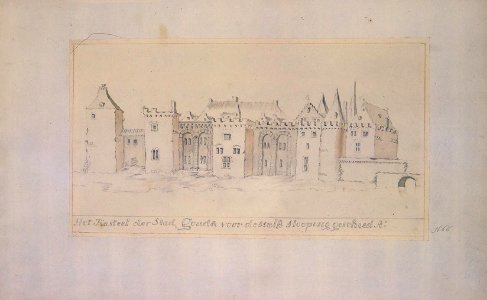 Het Kasteel der Stad Gouda voor deszelfs slooping geschied Aº